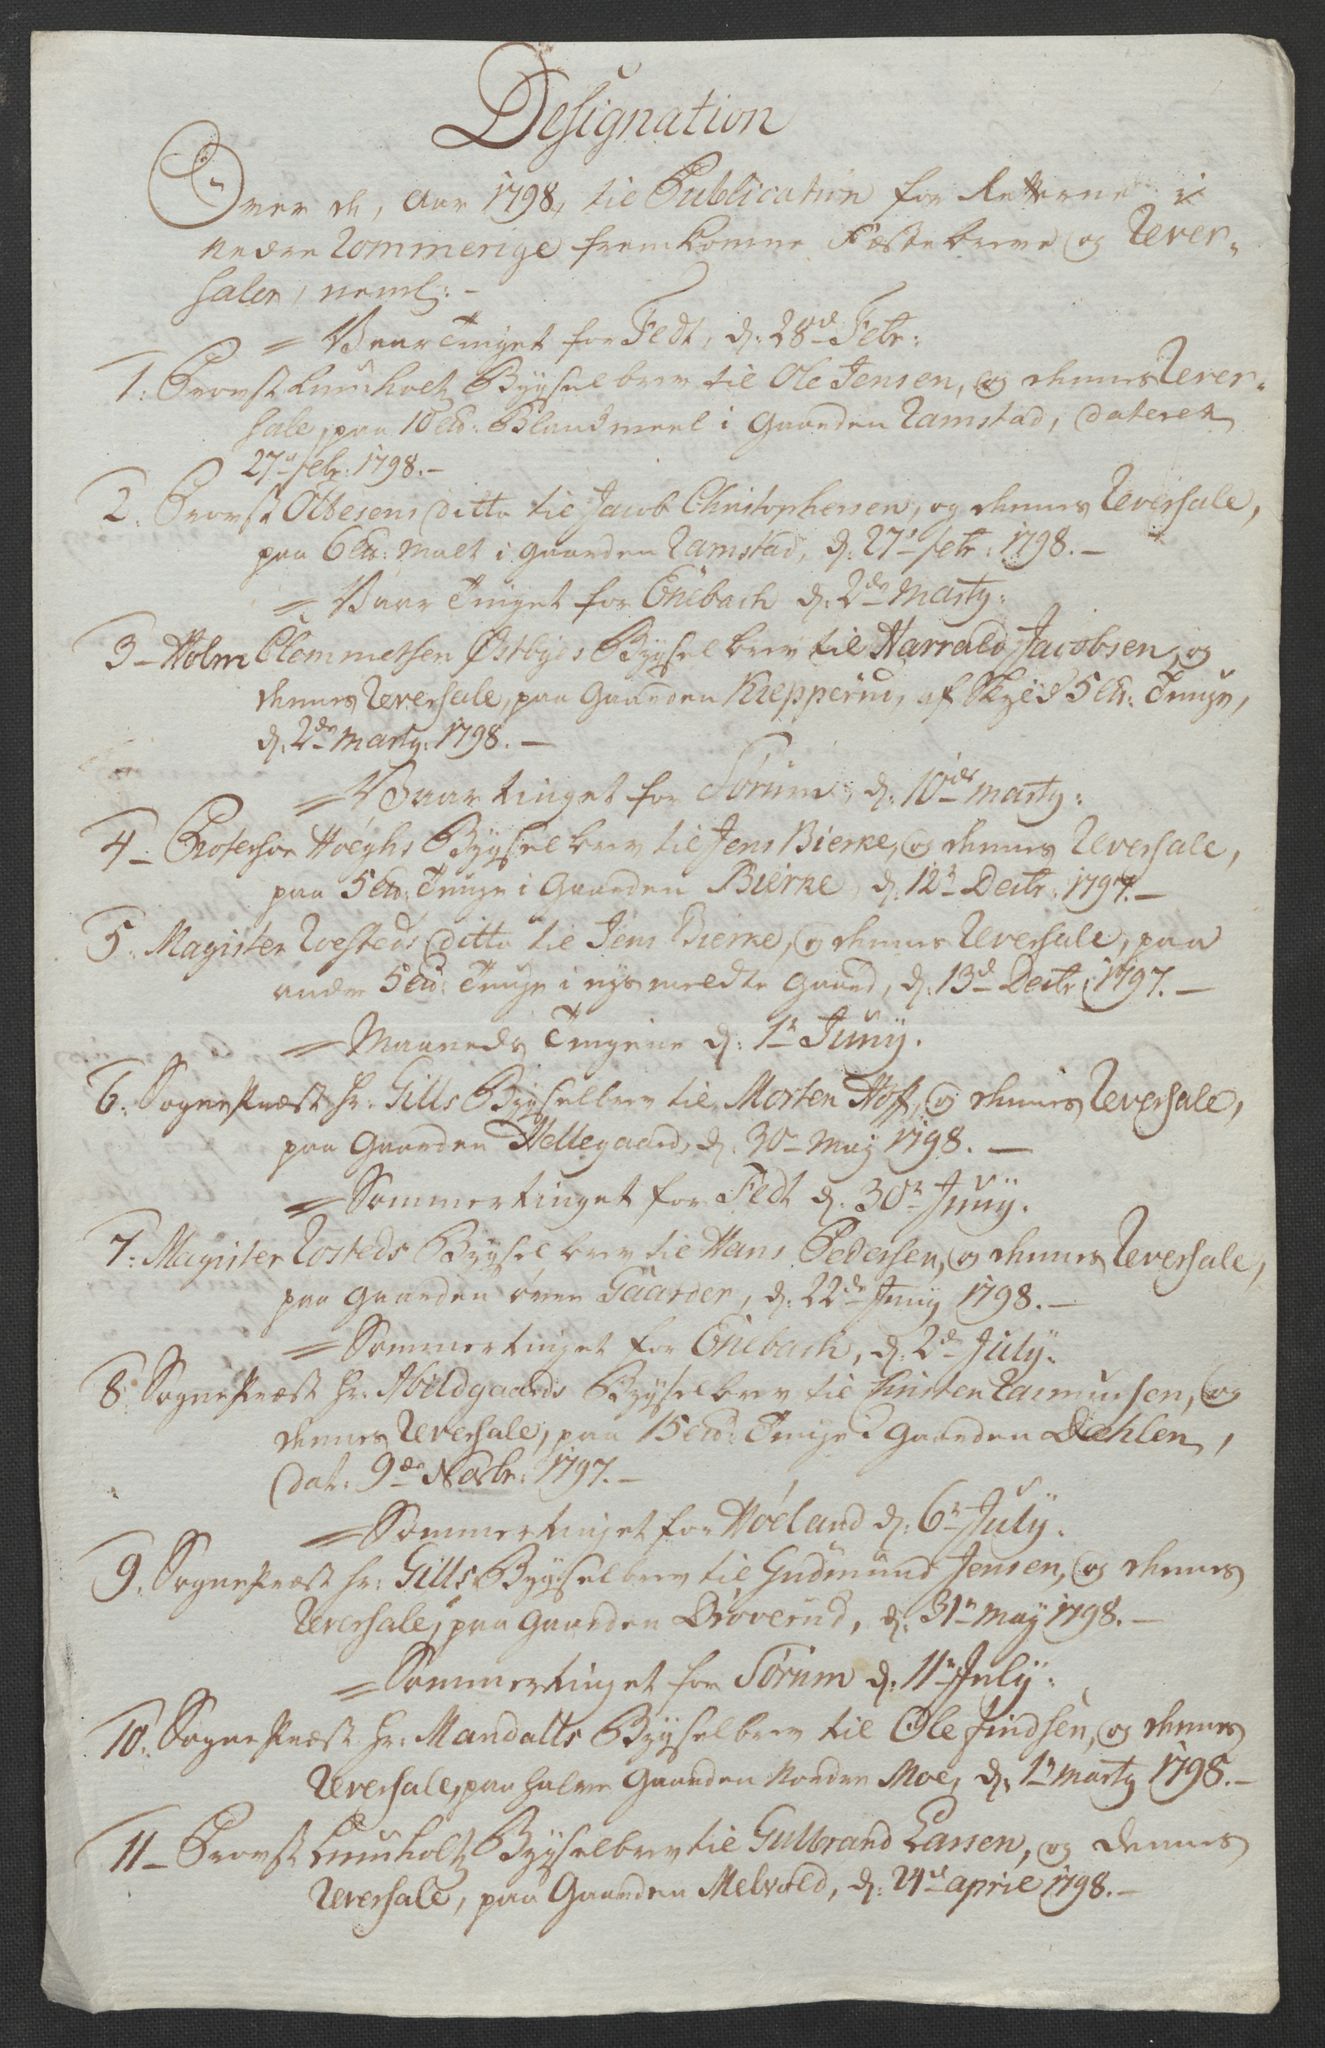 Designation
Over de, Aar 1798, til Publication for Retterne i
Nedre Rommerige fremkomne Fæstebreve og Rever-
saler, neml: -
= Vaar Tinget for Fedt, d: 28de Febr:
1. Provst Lumholtz Bygselbrev til Ole Jensen, og dennes Rever-
sale, paa 10 Lb: Blandmeel i Gaarden Ramstad, dateret
27de febr: 1798. -
2. Provst Ottesens ditto til Jacob Christophersen, og dennes Reversale,
paa 6 Lb: Malt i Gaarden Ramstad, d: 27de febr: 1798. -
= Vaar Tinget for Enebach d: 2den Marty:
3 - Holm Clemmetsen Østbyes Bygselbrev til Harrald Jacobsen, og
dennes Reversale, paa Gaarden Knepperud, af Skyld 5 Lb: Tunge,
d: 2den Marty: 1798. -
= Vaartinget for Sørum, d: 10de Marty:
4 - Professor Høeghs Bygselbrev til Jens Bierke, og dennes Reversale,
paa 5 Lb: Tunge i Gaarden Bierke, d: 12te Decbr: 1797. -
5. Magister Rosteds ditto til Jens Bierke, og dennes Reversale, paa
andre 5 Lb: Tunge i nysmeldte Gaard, d: 13de Decbr: 1797. -
= Maaneds Tingene d: 1te Juny.
6. SognePræst Hr: Gills Bygselbrev til Morten Hoff, og dennes Reversale,
paa Gaarden Hellegaard, d: 30te May 1798. -
= Sommertinget for Fedt d: 30te Juny.
7. Magister Rosteds Bygselbrev til Hans Pedersen, og dennes Reversale,
paa Gaarden øvre Gaarder, d: 22de Juny 1798. -
= Sommertinget for Enebach, d: 2de July.
8. SognePræst Hr: Abildgaards Bygselbrev til Christen Rasmusen, og
dennes Reversale, paa 15 Lb: Tunge i Gaarden Dæhlen,
dat: 9de Novbr: 1797. -
= Sommertinget for Høland d: 6te July.
9. SognePræst Hr: Gills Bygselbrev til Gudmund Jensen, og dennes
Reversale, paa Gaarden Prøverud, d: 31te May 1798. -
= Sommertinget for Sørum d: 11te July:
10. SognePræst Hr: Mandalls Bygselbrev til Ole Findsen, og dennes
Reversale, paa halve Gaarden Nordre Moe, d: 1te Marty 1798. -
11 - Provst Lumholtz Bygselbrev til Gulbrand Larsen, og dennes
Reversale, paa Gaarden Melvold, d: 24de April 1798. -